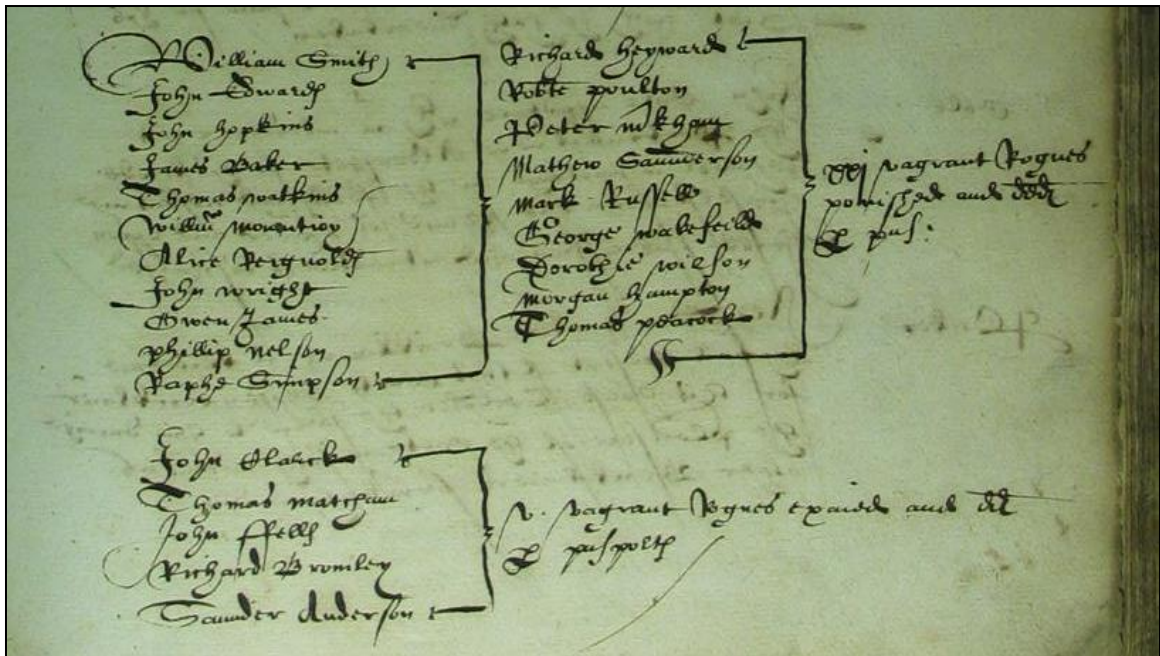 William Smith
John Edwards
John Hopkins
James Baker
Thomas watkins
Willm Mountioy
Alice Reignolds
John wright
Owen James
Phillip nelson
Raphe Simpson
Richard Heyward
Robte poulton
Peter
Mathew Saunderson
Mark Russell
George wakefeild
Dorothie wilson
Morgan Hampton
Thomas peacock
xxj vagrant Rogues
ponished and
p
John Clarck
Thomas Matcham
John ffells
Richard Bromley
Saunder Anderson
v. vagrant Rogues exaied and
p